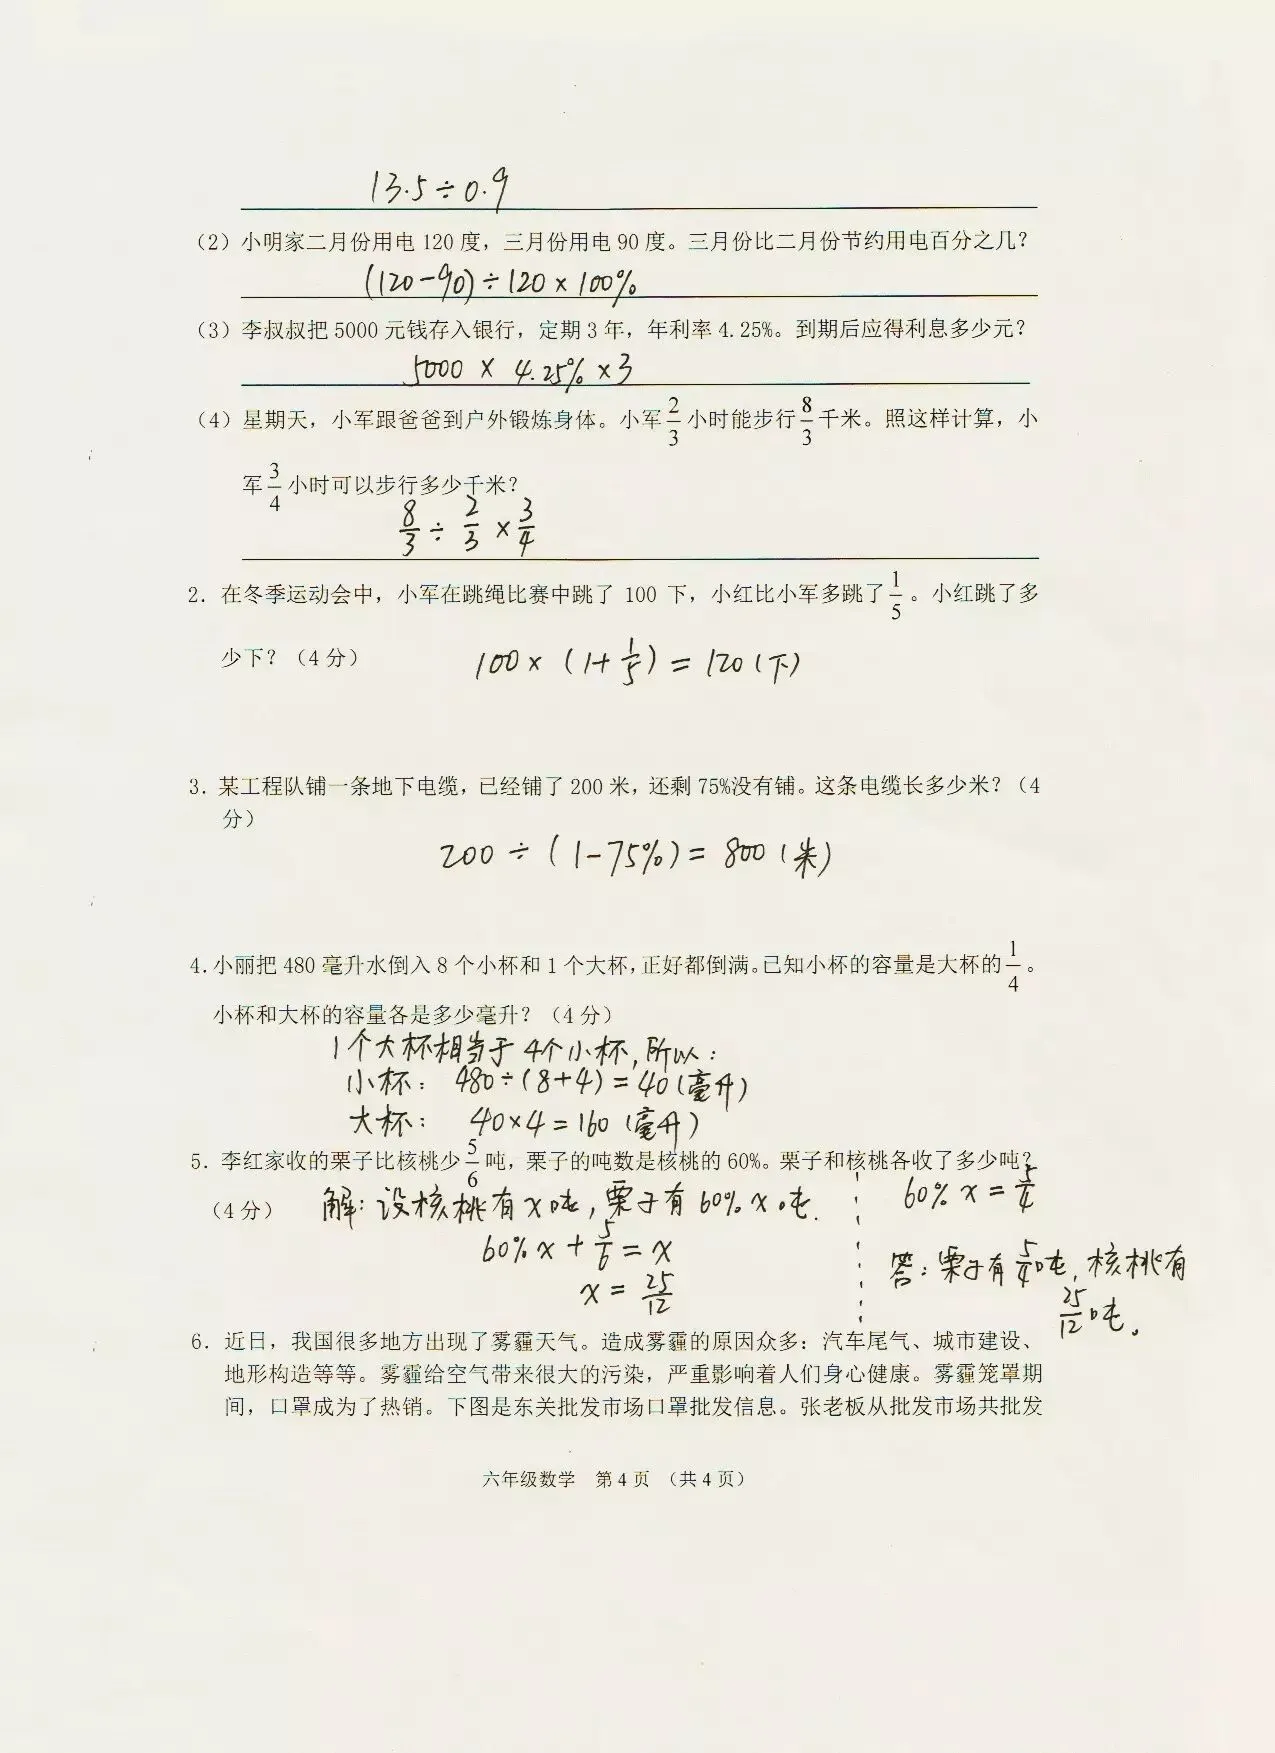 13.5÷0.9
（2）小明家二月份用电 120 度，三月份用电 90 度。三月份比二月份节约用电百分之几？
(120-90)÷120×100%
（3）李叔叔把 5000 元钱存入银行，定期 3 年，年利率 4.25%。到期后应得利息多少元？
5000×4.25%×3
（4）星期天，小军跟爸爸到户外锻炼身体。小军 2/3 小时能步行 8/3 千米。照这样计算，小
军 3/4 小时可以步行多少千米？
8/3÷2/3×3/4
2．在冬季运动会中，小军在跳绳比赛中跳了 100 下，小红比小军多跳了 1/5 。小红跳了多
少下？（4 分）
100×(1+1/5)=120(下)
3．某工程队铺一条地下电缆，已经铺了 200 米，还剩 75%没有铺。这条电缆长多少米？（4
分）
200÷(1-75%)=800(米)
4.小丽把 480 毫升水倒入 8 个小杯和 1 个大杯，正好都倒满。已知小杯的容量是大杯的 1/4 。
小杯和大杯的容量各是多少毫升？（4 分）
1个大杯相当于4个小杯，所以：
小杯：480÷(8+4)=40(毫升)
大杯：40×4=160(毫升)
5．李红家收的栗子比核桃少 5/6 吨，栗子的吨数是核桃的 60%。栗子和核桃各收了多少吨？
（4 分）
解：设核桃有x吨，栗子有60%x吨.
60%x+5/6=x
x=25/12
60%x=5/4
答：栗子有5/4吨，核桃有
25/12吨。
6．近日，我国很多地方出现了雾霾天气。造成雾霾的原因众多：汽车尾气、城市建设、
地形构造等等。雾霾给空气带来很大的污染，严重影响着人们身心健康。雾霾笼罩期
间，口罩成为了热销。下图是东关批发市场口罩批发信息。张老板从批发市场共批发
六年级数学 第 4 页 （共 4 页）